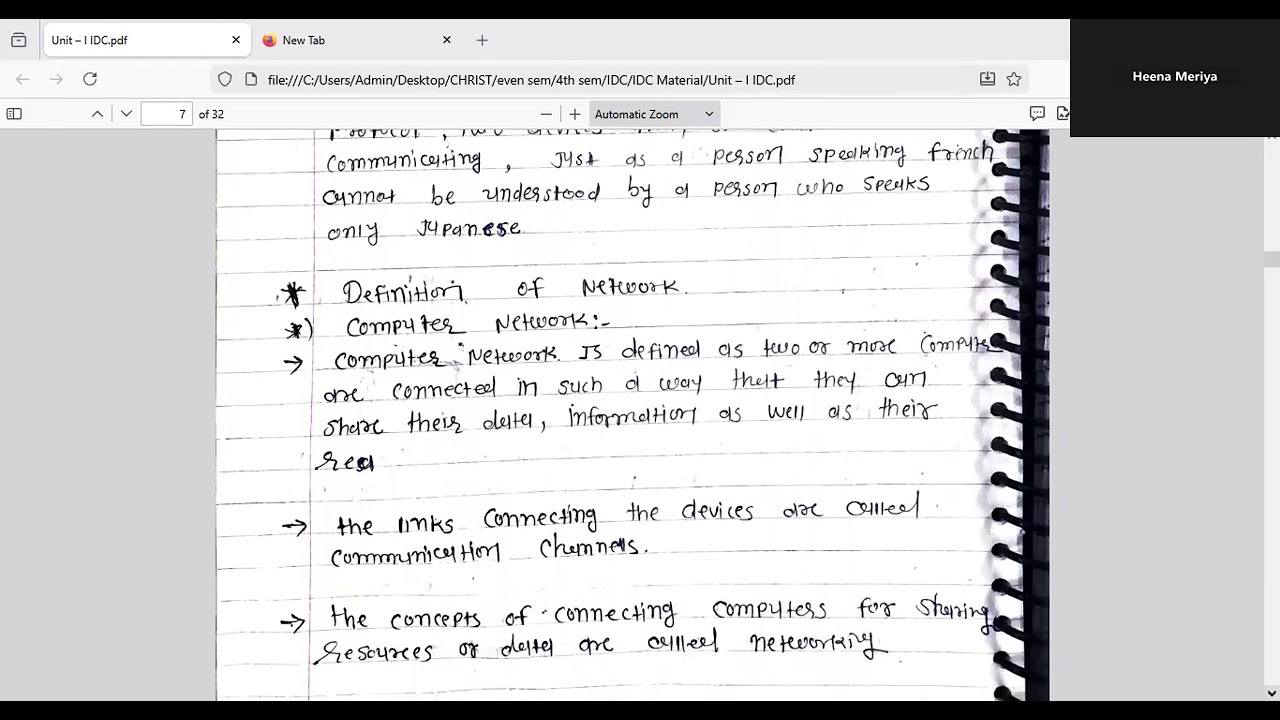 Unit – I IDC.pdf
New Tab
Heena Meriya
file:///C:/Users/Admin/Desktop/CHRIST/even sem/4th sem/IDC/IDC Material/Unit – I IDC.pdf
7 of 32
Automatic Zoom
communicating, just as a person speaking french
cannot be understood by a person who speaks
only Japanese
* Definition of Network.
*) Computer Network:-
→ Computer Network is defined as two or more Computer
are connected in such a way that they can
share their data, information as well as their
→ the links connecting the devices are called
communication channels.
→ the concepts of connecting computers for sharing
resources or data are called networking